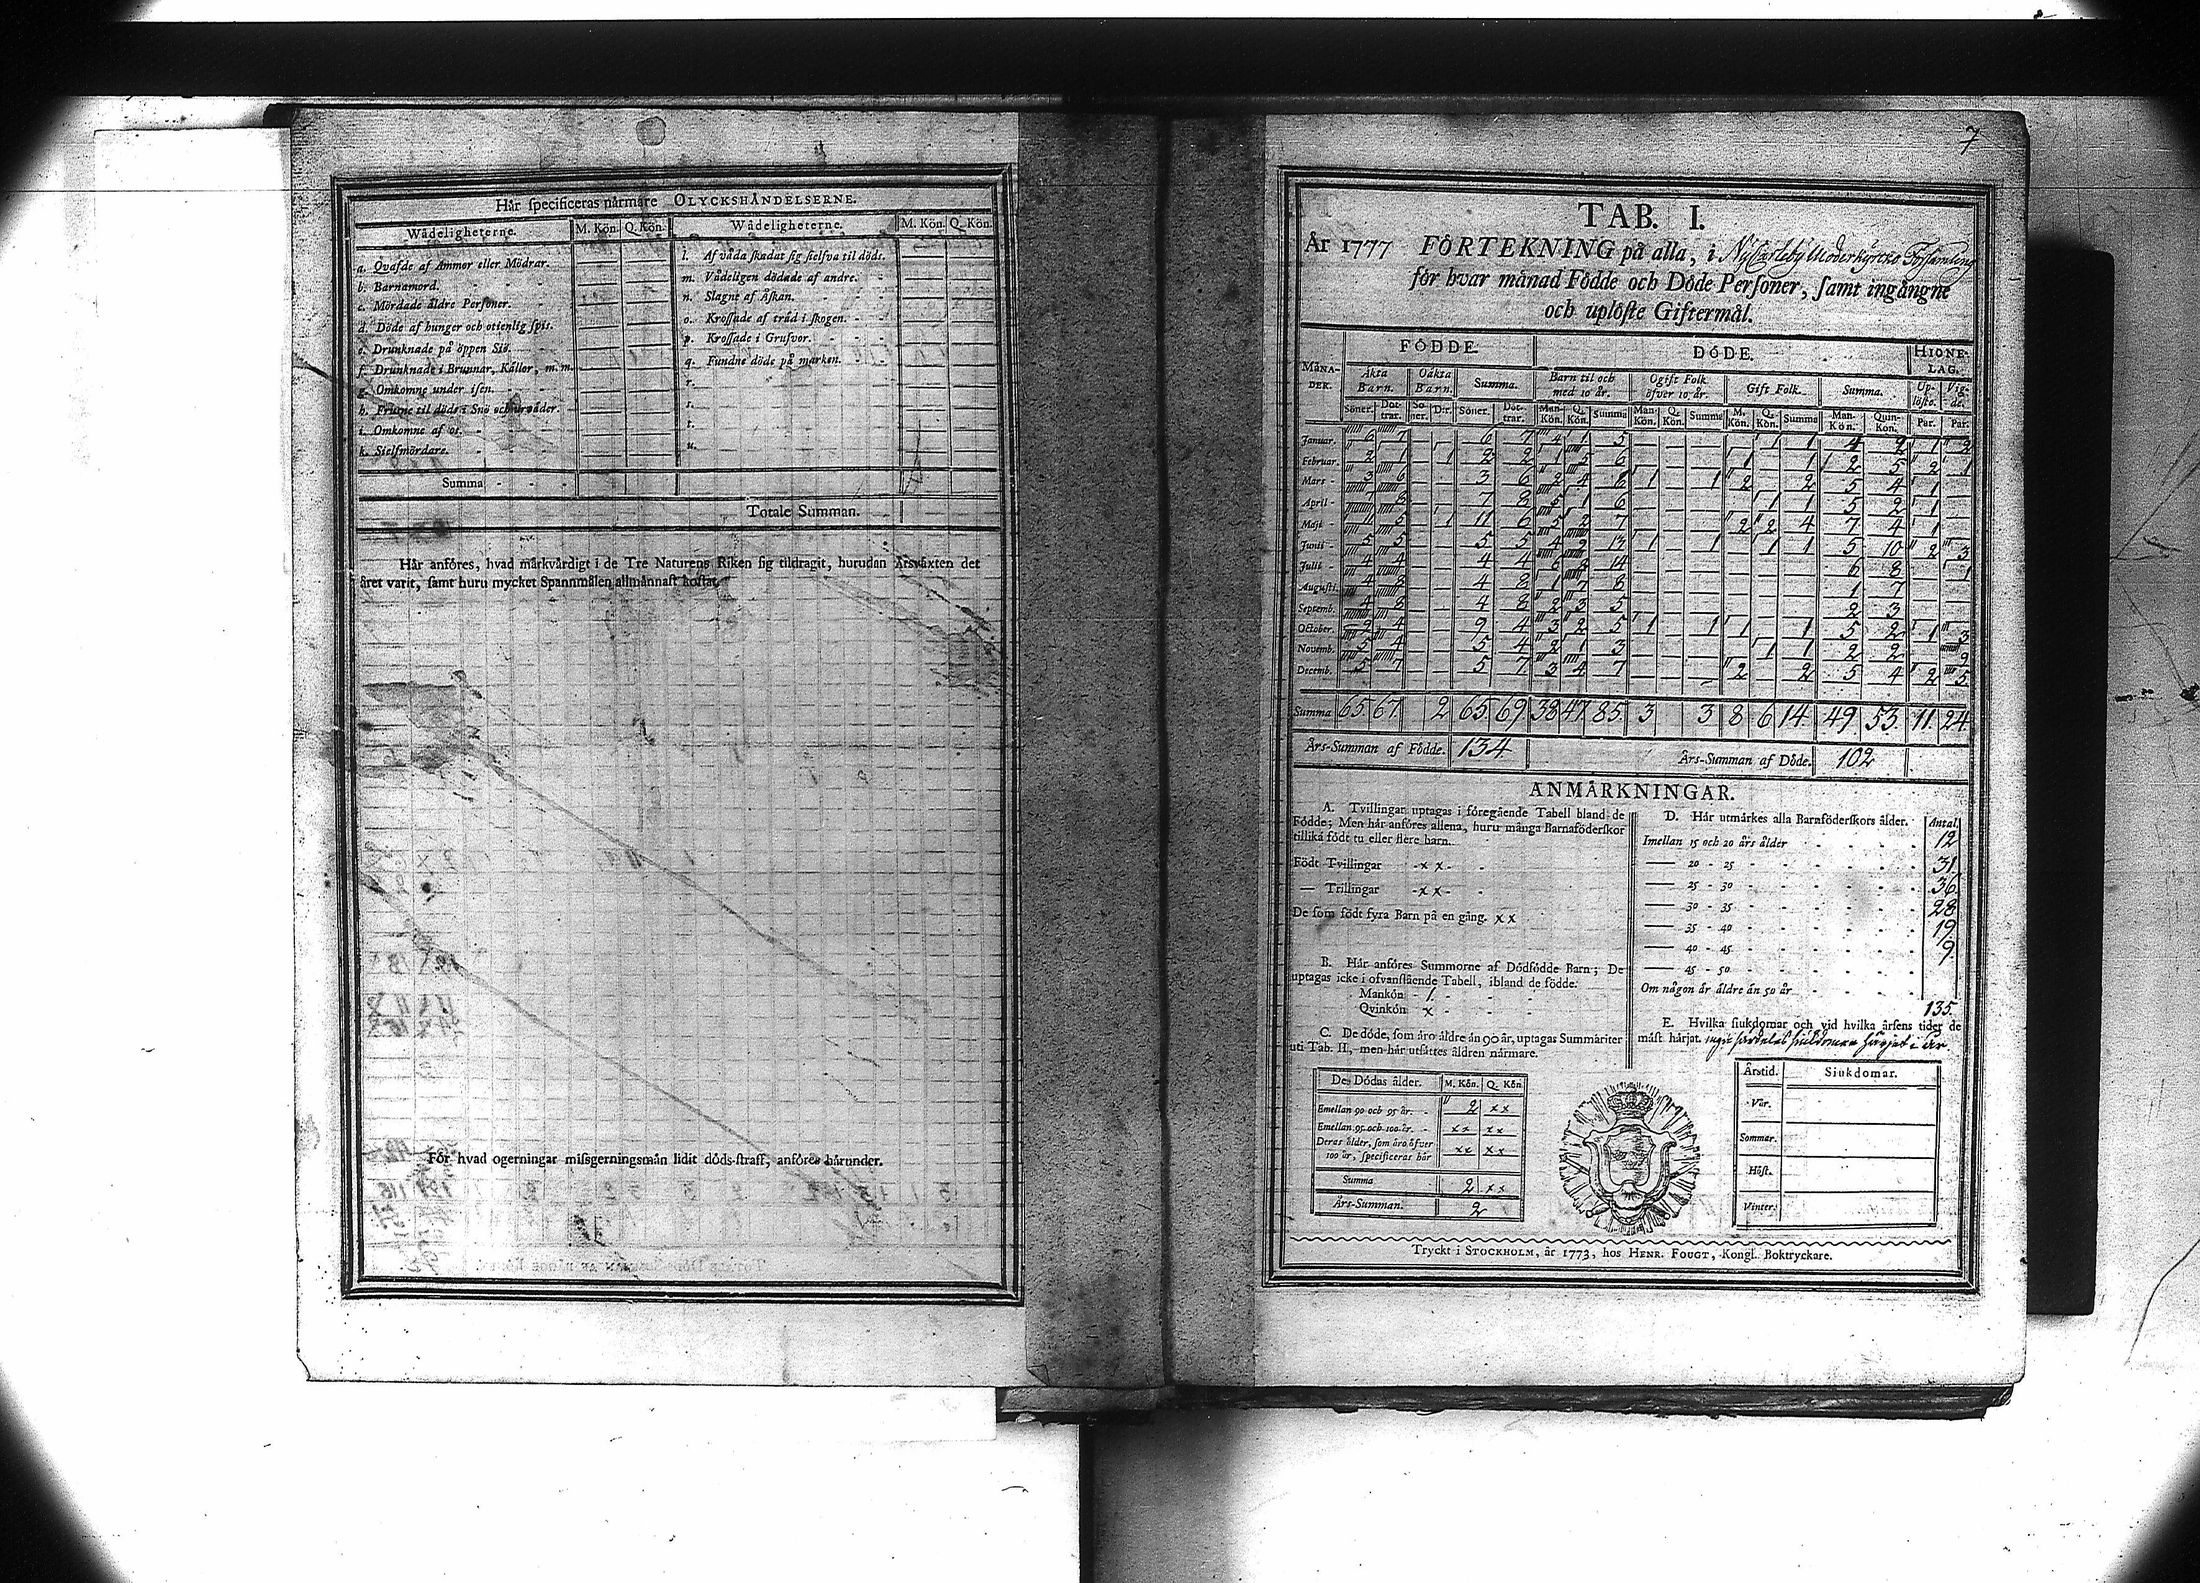 Hår specificeras närmare OLYCKSHÅNDELSERNE.
Wådeligheterne. M. Kön. Q. Kön. Wådeligheterne. M. Kön. Q. Kön.
a. Qvafde af Ammor eller Mödrar.
b. Barnamord.
c. Mördade äldre Personer.
d. Döde af hunger och otienlig spis.
e. Drunknade på öppen Siö.
f. Drunknade i Brunnar, Källor, m.m.
g. Omkomne under isen.
h. Frusne til döds i Snö och urväder.
i. Omkomne af os.
k. Sielfmördare.
l. Af våda skadat sig sielfva til döds.
m. Vådeligen dödade af andre.
n. Slagne af Åskan.
o. Krossade af träd i skogen.
p. Krossade i Grufvor.
q. Fundne döde på marken.
r.
s.
t.
u.
Summa
Totale Summan.
Hår anföres, hvad märkvärdigt i de Tre Naturens Riken sig tildragit, hurudan Årsväxten det
året varit, samt huru mycket Spannmålen allmännast kostat.
För hvad ogerningar missgerningsmän lidit döds-straff, anföres härunder.
7
TAB. I.
År 1777 FÖRTEKNING på alla, i NyCarleby Moderkyrko Församling
för hvar månad Födde och Döde Personer, samt ingångne
och uplöste Giftermål.
FÖDDE. DÖDE. HIONE-LAG.
MÅNA-DER. Äkta Barn. Oäkta Barn. Summa. Barn til och med 10 år. Ogift Folk öfver 10 år. Gift Folk. Summa. Up-löste. Vig-de.
Söner. Döt-trar. So-ner. D:r. Söner. Döt-trar. Man-Kön. Q. Kön. Summa Man-Kön. Q. Kön. Summa M. Kön. Q. Kön. Summa Man-Kön. Quin-Kön. Par. Par.
Januar. 6 7 — — 6 7 4 1 5 — — — — 1 1 4 2 1 2
Februar. 2 1 — 1 2 2 1 5 6 — — — 1 — 1 2 5 2 1
Mars 3 6 — — 3 6 2 4 6 1 — 1 2 — 2 5 4 1 —
April 7 8 — — 7 8 5 1 6 — — — — 1 1 5 2 1 —
Maji 11 5 — 1 11 6 5 2 7 — — — 2 2 4 7 4 1 —
Junii 5 5 — — 5 5 4 9 13 1 — 1 — 1 1 5 10 2 3
Julii 4 4 — — 4 4 6 8 14 — — — — — — 6 8 — 1
Augusti. 4 8 — — 4 8 1 7 8 — — — — — — 1 7 — —
Septemb. 4 8 — — 4 8 2 3 5 — — — — — — 2 3 — —
October. 9 4 — — 9 4 3 2 5 1 — 1 1 — 1 5 2 1 3
Novemb. 5 4 — — 5 4 2 1 3 — — — — 1 1 2 2 — 9
Decemb. 5 7 — — 5 7 3 4 7 — — — 2 — 2 5 4 2 5
Summa 65 67 2 65 69 38 47 85 3 3 8 6 14 49 53 11 24
Års-Summan af Födde. 134 Års-Summan af Döde. 102
ANMÄRKNINGAR.
A. Tvillingar uptagas i föregående Tabell bland de
Födde; Men här anföres allena, huru många Barnaföderskor
tillika födt tu eller flere barn.
Födt Tvillingar -x x-
— Trillingar -x x-
De som födt fyra Barn på en gång. x x
B. Hår anföres Summorne af Dödfödde Barn; De
uptagas icke i ofvanstående Tabell, ibland de födde.
Mankön 1.
Qvinkön x
C. De döde, som äro äldre än 90 år, uptagas Summariter
uti Tab. II, men här utsättes åldren närmare.
De Dödas ålder. M. Kön. Q. Kön
Emellan 90 och 95 år. 2 xx
Emellan 95 och 100 år. xx xx
Deras ålder, som äro öfver
100 år, specificeras här xx xx
Summa 2 xx
Års-Summan. 2
D. Hår utmärkes alla Barnföderskors ålder. Antal.
Imellan 15 och 20 års ålder 12
— 20 - 25 31
— 25 - 30 36
— 30 - 35 28
— 35 - 40 19
— 40 - 45 9.
— 45 - 50
Om någon är äldre än 50 år
135.
E. Hvilka siukdomar och vid hvilka årsens tider de
mäst härjat. inga särdeles siukdomar härjat i år
Årstid. Siukdomar.
Vår.
Sommar.
Höst.
Vinter.
Tryckt i STOCKHOLM, år 1773, hos HENR. FOUGT, Kongl. Boktryckare.